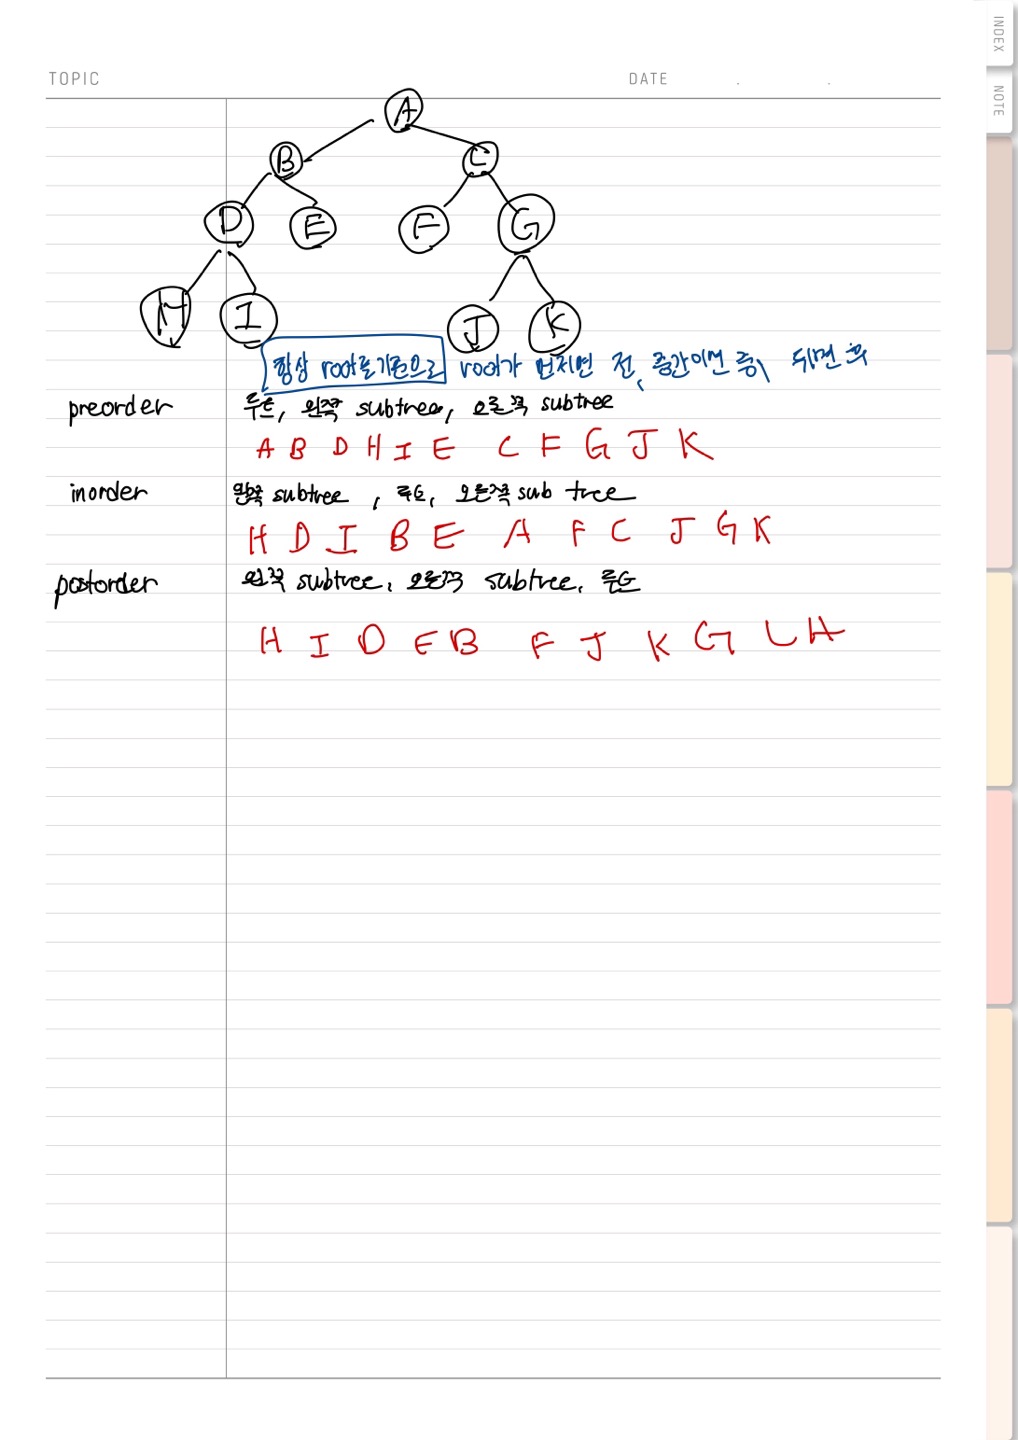 INDEX
NOTE
TOPIC DATE . .
A
B C
D E F G
H I J K
항상 root를 기준으로 root가 먼저면 전, 중간이면 중, 뒤면 후
preorder 루트, 왼쪽 subtree, 오른쪽 subtree
A B D H I E C F G J K
inorder 왼쪽 subtree, 루트, 오른쪽 sub tree
H D I B E A F C J G K
postorder 왼쪽 subtree, 오른쪽 subtree, 루트
H I D E B F J K G C A